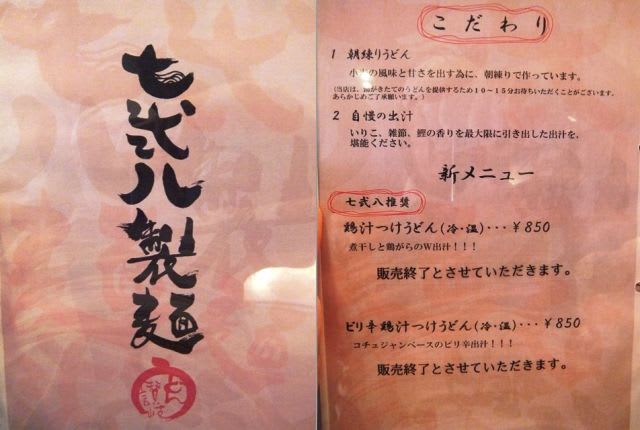 七弐八製麺
こだわり
1 朝練りうどん
小麦の風味と甘さを出す為に、朝練りで作っています。
(当店は、湯がきたてのうどんを提供するため10～15分お待ちいただくことがございます。
あらかじめご了承願います。)
2 自慢の出汁
いりこ、雑節、鰹の香りを最大限に引き出した出汁を、
堪能ください。
新メニュー
七弐八推奨
鶏汁つけうどん(冷・温)・・・￥850
煮干しと鶏がらのW出汁！！！
販売終了とさせていただきます。
ピリ辛鶏汁つけうどん(冷・温)・・・￥850
コチュジャンベースのピリ辛出汁！！！
販売終了とさせていただきます。